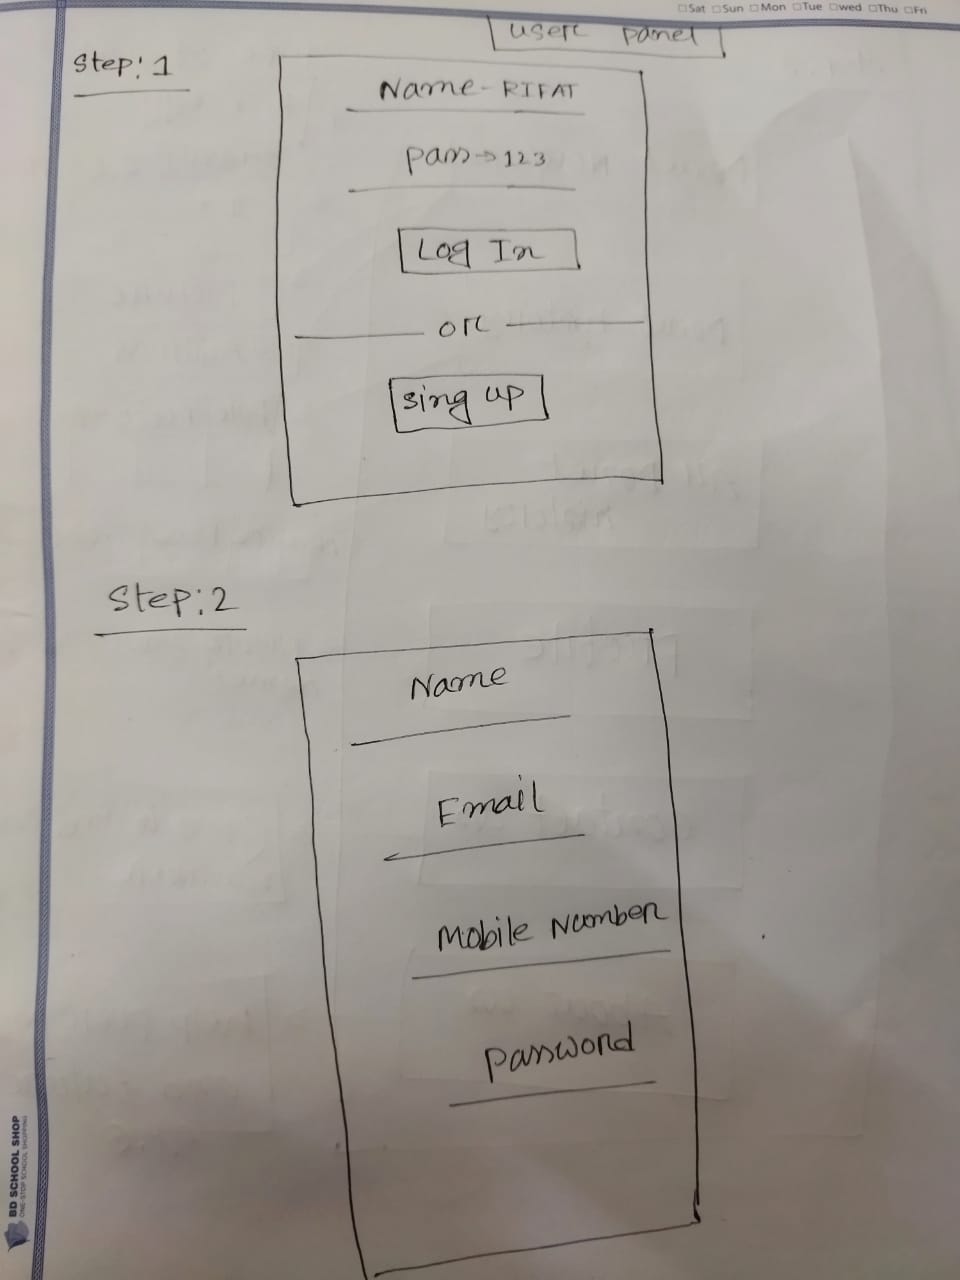 □Sat □Sun □Mon □Tue □wed □Thu □Fri
User panel
Step: 1
Name - RIFAT
pass → 123
Log In
or
Sing up
Step: 2
Name
Email
Mobile Number
password
BD SCHOOL SHOP
ONE-STOP SCHOOL SHOPPING